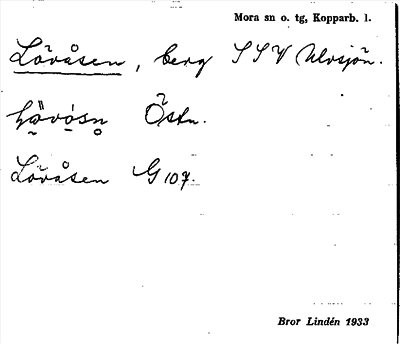 Mora sn o. tg, Kopparb. l.
Lövåsen, berg SSV Ulvsjön.
lövósn Östn.
Lövåsen G 107.
Bror Lindén 1933